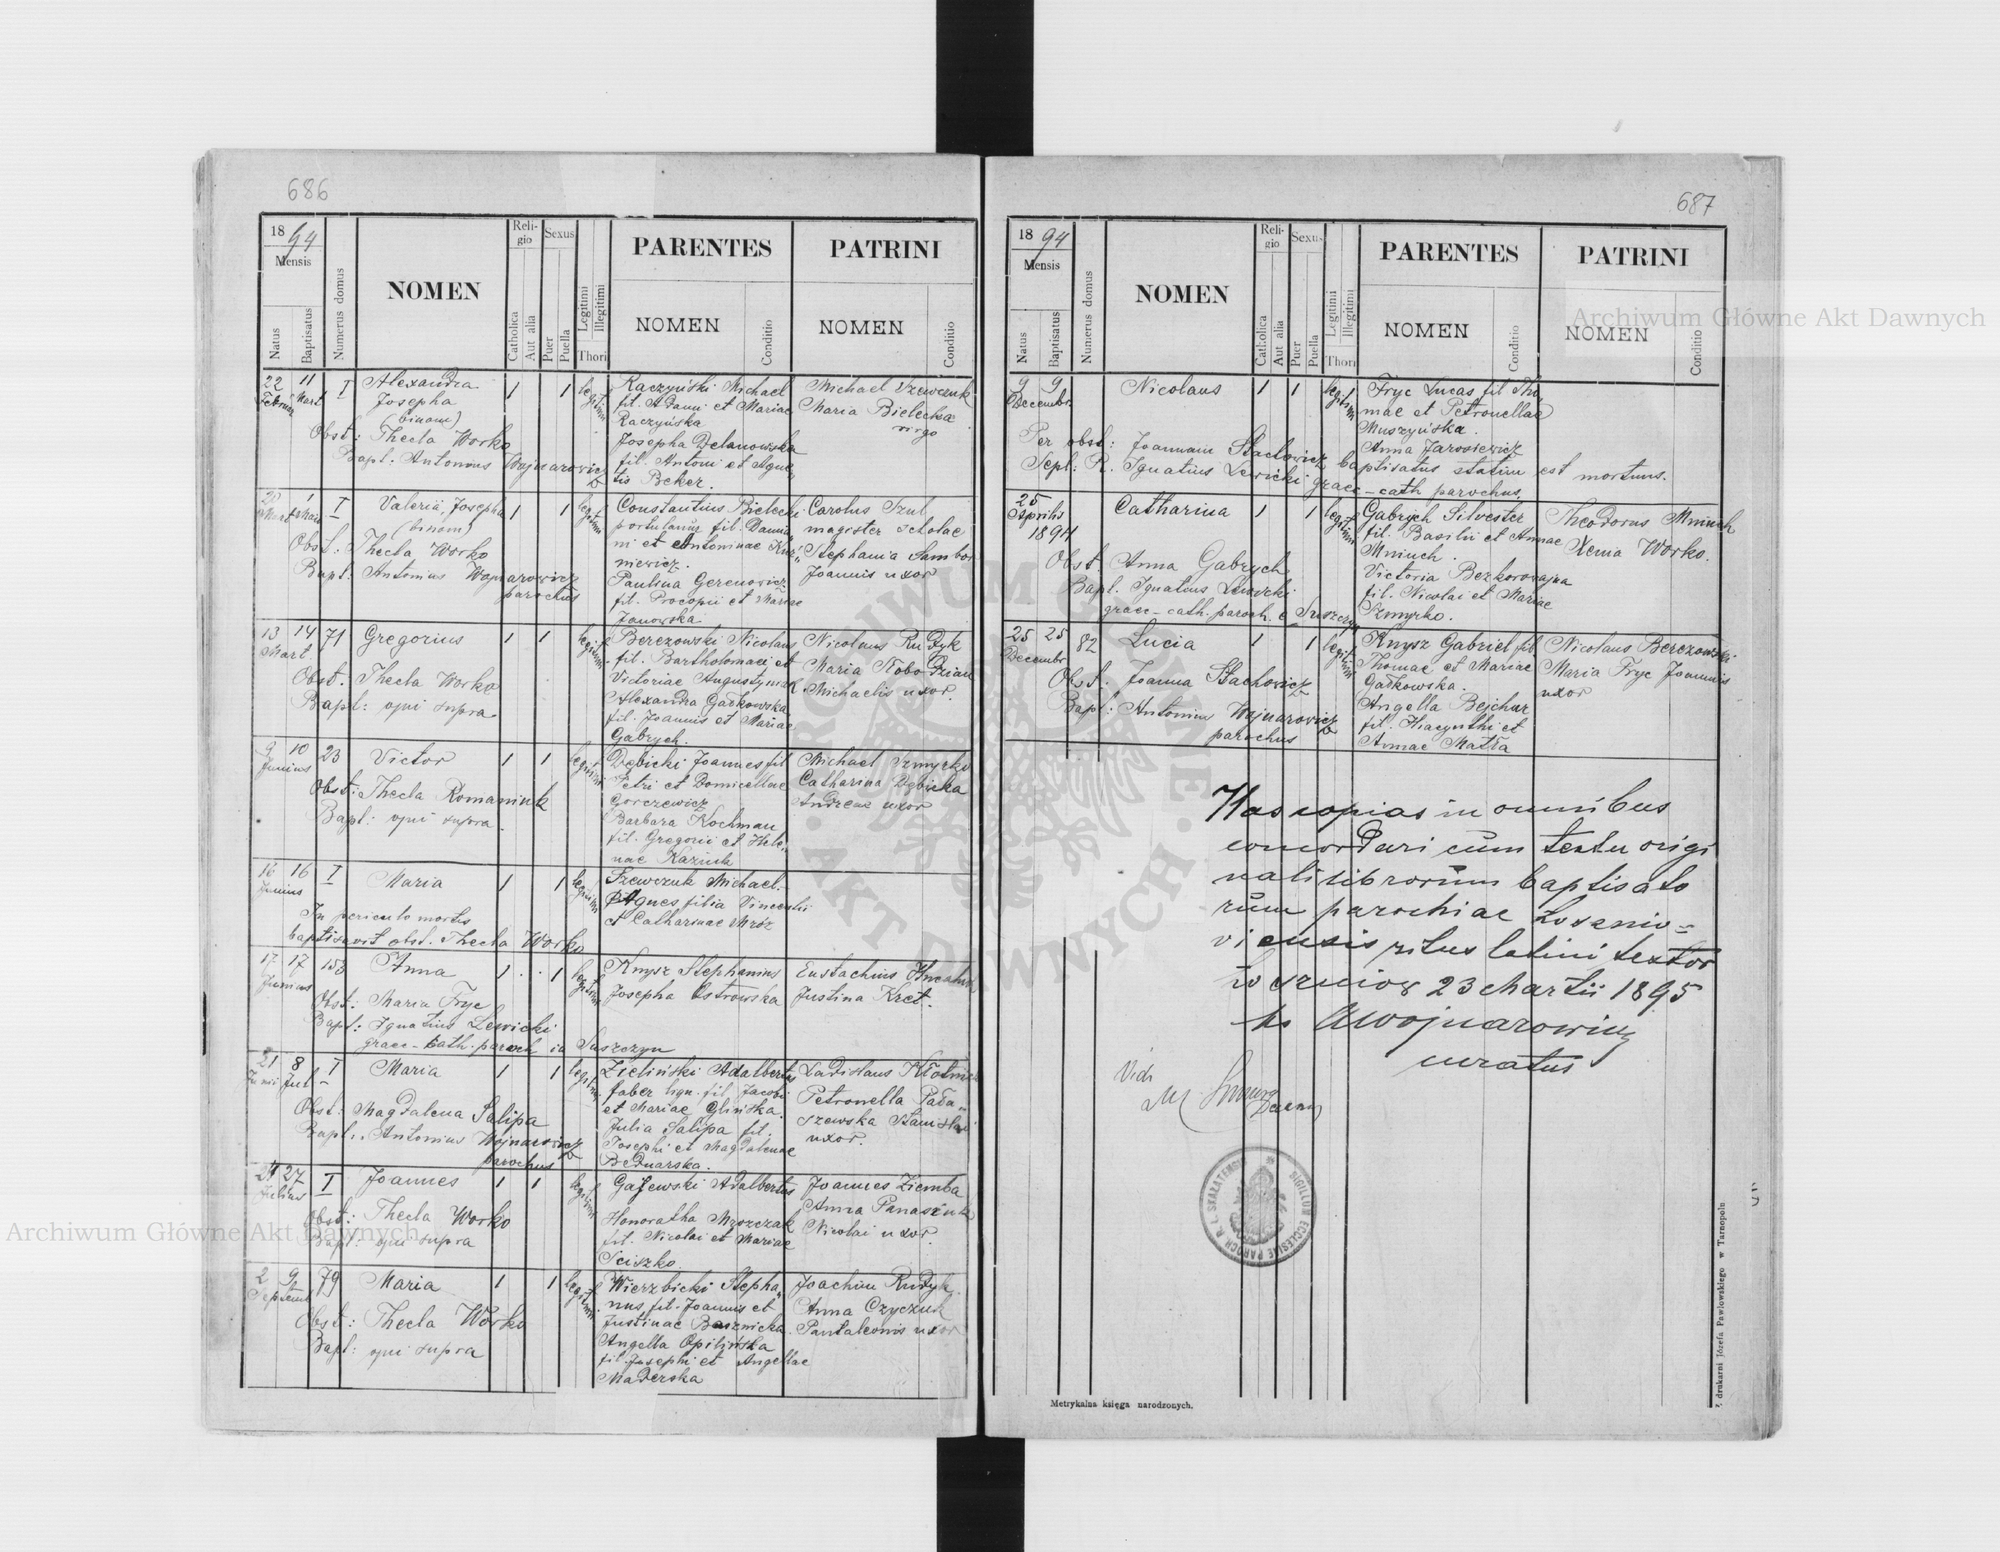 686
1894
Mensis
Natus
Baptisatus
Numerus domus
NOMEN
Religio
Catholica
Aut alia
Sexus
Puer
Puella
Legitimi
Illegitimi
Thori
PARENTES
NOMEN
Conditio
PATRINI
NOMEN
Conditio
22 11 I Alexandra 1 1 legitimi Raczyński Michael Michael Szewczuk
Februar Mart Josepha fil. Adami et Mariae Maria Bielecka
(binom) Raczyńska virgo
Obst: Thecla Worko Josepha Delanowska
Bapt: Antonius Wojnarowicz fil. Antoni et Agne
tis Beker.
1 I Valeria, Josepha 1 1 legitimi Constantius Bielecki Carolus Szul
Mart (binom) fil. Dami magister scholae
Obst. Thecla Worko ni et Antoninae Kur Stephania Sambor
Bapt. Antonius Wojnarowicz niewicz. Joannis uxor
parochus Paulina Gerenowicz
fil. Procopii et Mariae
Janowska
13 14 71 Gregorius 1 1 legitimi Berezowski Nicolaus Nicolaus Rudyk
Mart fil. Bartholomaei et Maria Nobodzian
Obst. Thecla Worko Victoriae Augustyniak Michaelis uxor.
Bapt: qui supra Alexandra Gadkowska
fil. Joannis et Mariae
Gabrych.
9 10 23 Victor 1 1 legitimi Dębicki Joannes fil Michael Szmyrko
Junius Petri et Domicellae Catharina Dębicka
Obst: Thecla Romaniuk Gorczewicz Andreae uxor
Bapt: qui supra. Barbara Kochman
fil. Gregorii et Hele
nae Kaziuk
16 16 I Maria 1 1 legitimi Szewczuk Michael.
Junius Agnes filia Vincentii
In periculo mortis et Catharinae Mróz
baptisavit obst. Thecla Worko
17 17 153 Anna 1 1 legitimi Knysz Stephanus Eustachius
Junius Josepha Ostrowska Justina Kret.
Obst: Maria Fryc
Bapt: Ignatius Lewicki
graec-cath. paroch in Suszczyn
21 8 I Maria 1 1 legitimi Zieliński Adalbertus Ladislaus
Junii Jul faber lign. fil Jacobi Petronella Pała
Obst: Magdalena Salipa et Mariae Glińska. szewska Stanislai
Bapt: Antonius Wojnarowicz Julia Salipa fil. uxor.
parochus Josephi et Magdalenae
Bednarska.
27 I Joannes 1 1 legitimi Gajewski Adalbertus Joannes Ziemba
Julius Anna Panasiuk
Obst: Thecla Worko Honoratha Mroczak Nicolai uxor.
Bapt: qui supra fil. Nicolai et Mariae
Sciszko.
2 9 79 Maria 1 1 legitimi Wierzbicki Stepha Joachim Rudyk
Septemb nus fil. Joannis et Anna Czyczuk
Obst: Thecla Worko Justinae Basznicka Pantaleonis uxor
Bapt: qui supra Angella Opilińska
fil. Josephi et Angellae
Maderska
687
1894
Mensis
Natus
Baptisatus
Numerus domus
NOMEN
Religio
Catholica
Aut alia
Sexus
Puer
Puella
Legitimi
Illegitimi
Thori
PARENTES
NOMEN
Conditio
PATRINI
NOMEN
Conditio
9 9 Nicolaus 1 1 legitimi Fryc Lucas fil Tho
Decembr. mae et Petronellae
Muszyńska.
Per obst: Joannam Stachowicz Anna Jarosiewicz
baptisatus statim est mortuus.
Sepl: R. Ignatius Lewicki graec-cath parochus.
25 Catharina 1 1 legitimi Gabrych Silvester Theodorus Mniuch
Aprilis fil. Basilii et Annae Xenia Worko.
1894 Mniuch.
Obst. Anna Gabrych Victoria Bezkorowajna
Bapt. Ignatius Lewicki fil. Nicolai et Mariae
graec-cath. paroch. e Suszczyn Szmyrko.
25 25 82 Lucia 1 1 legitimi Knysz Gabriel fil Nicolaus Berezowski
Decembr Thomae et Mariae Maria Fryc Joannis
Obst. Joanna Stachowicz Gadkowska. uxor
Bapt: Antonius Wojnarowicz Angella Bejchur
parochus fil. Hiacynthi et
Annae Matła
Has copias in omnibus
concordari cum textu origi
nali librorum baptisato
rum parochiae Łosenio=
viensis ritus latini testor
Łoszniow 23 Martii 1895
ks AWojnarowicz
curatus
Vidi
M
SIGILLUM ECCLESIAE PAROCH R. L. SKAŁATENSIS
Metrykalna księga narodzonych.
z drukarni Józefa Pawłowskiego w Tarnopolu
Archiwum Główne Akt Dawnych
Archiwum Główne Akt Dawnych
ARCHIWUM GŁÓWNE AKT DAWNYCH